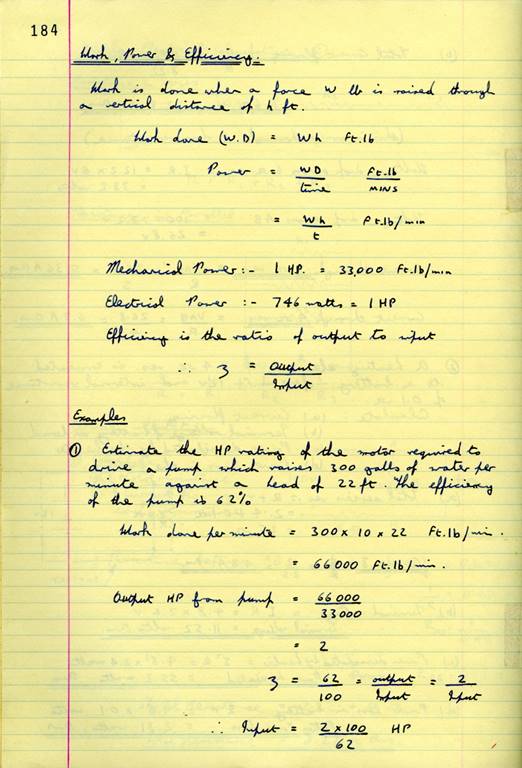 184
Work, Power & Efficiency.
Work is done when a force W lb is raised through
a vertical distance of h ft.
Work done (W.D) = Wh Ft.lb
Power = WD/time Ft.lb/MINS
= Wh/t Ft.lb/min
Mechanical Power :- 1 HP. = 33,000 Ft.lb/min
Electrical Power :- 746 watts = 1 HP
Efficiency is the ratio of output to input
∴ η = Output/Input
Examples
① Estimate the HP rating of the motor required to
drive a pump which raises 300 galls of water per
minute against a head of 22 ft. The efficiency
of the pump is 62%
Work done per minute = 300 x 10 x 22 Ft.lb/min.
= 66000 Ft.lb/min.
Output HP from pump = 66000/33000
= 2
η = 62/100 = output/Input = 2/Input
∴ Input = 2 x 100/62 HP